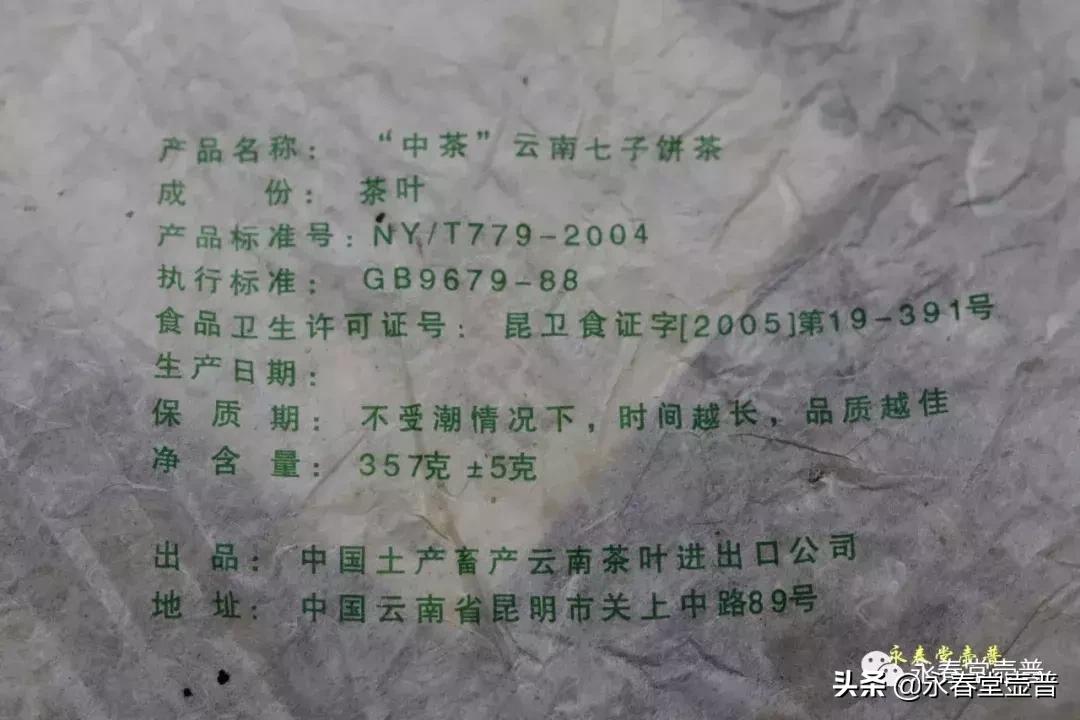 产品名称：“中茶”云南七子饼茶
成 份：茶叶
产品标准号：NY/T779-2004
执行标准：GB9679-88
食品卫生许可证号：昆卫食证字[2005]第19-391号
生产日期：
保 质 期：不受潮情况下，时间越长，品质越佳
净 含 量：357克±5克
出 品：中国土产畜产云南茶叶进出口公司
地 址：中国云南省昆明市关上中路89号
永春堂壶普
永春堂壶普
头条@永春堂壶普